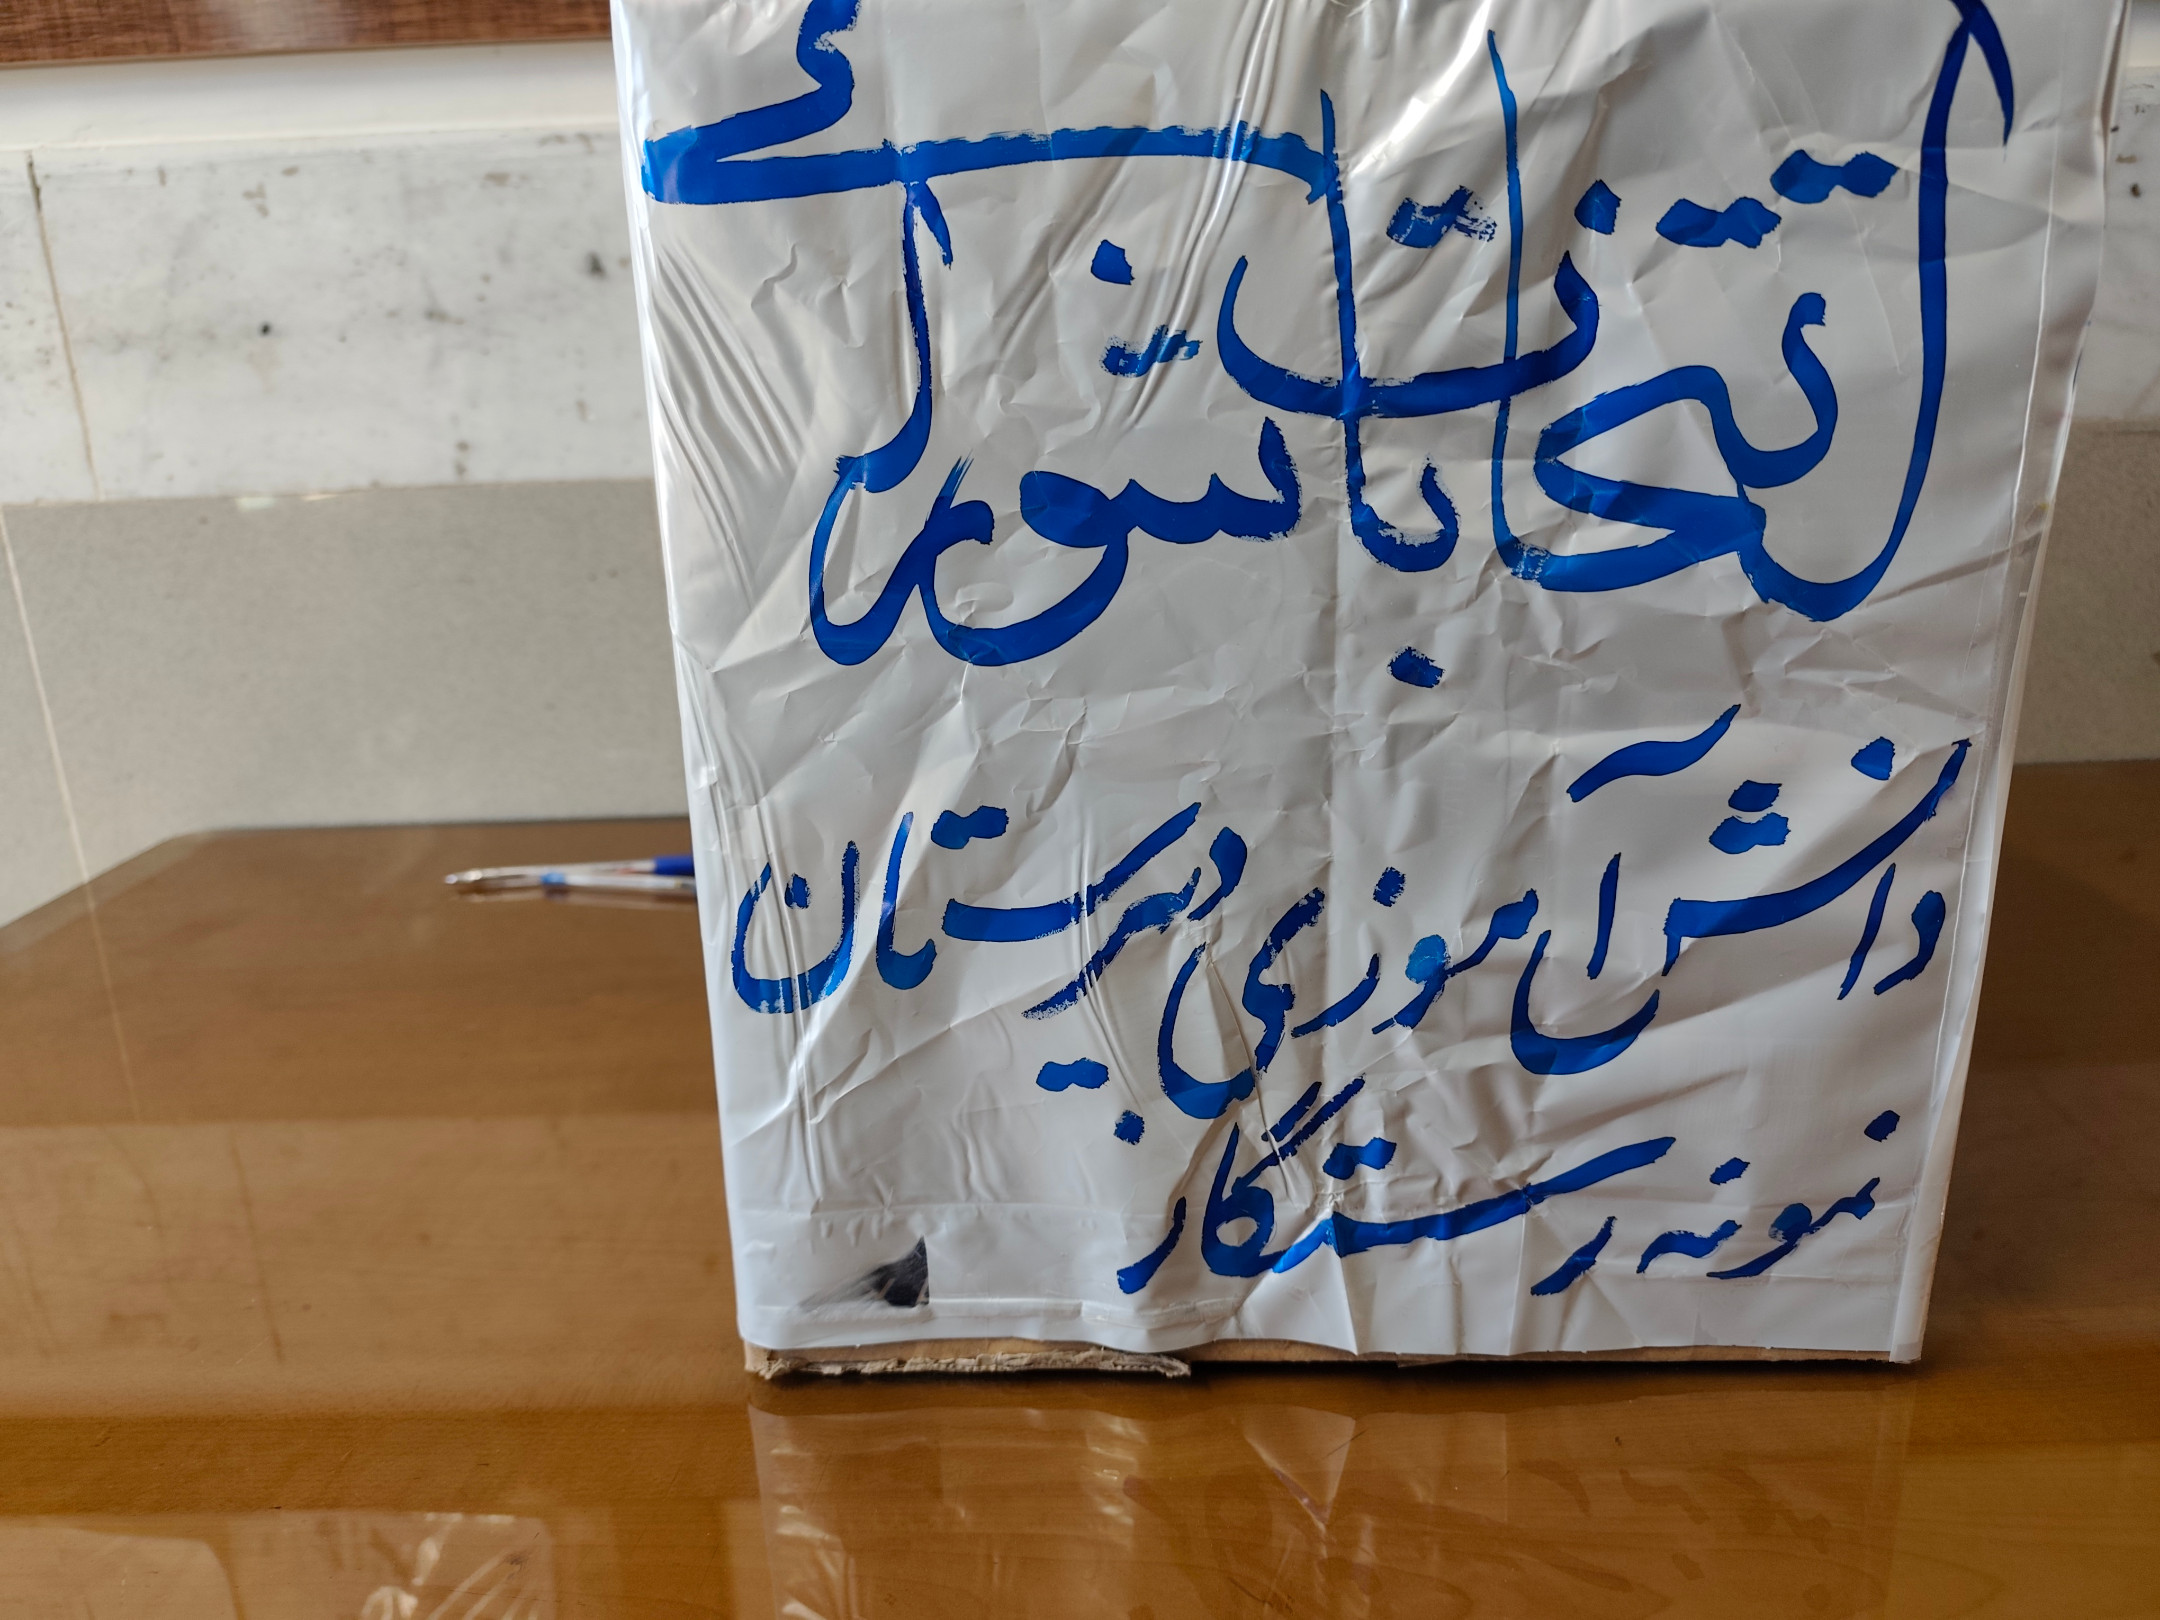 انتخابات شورای
دانش آموزی دبیرستان
نمونه رستگار